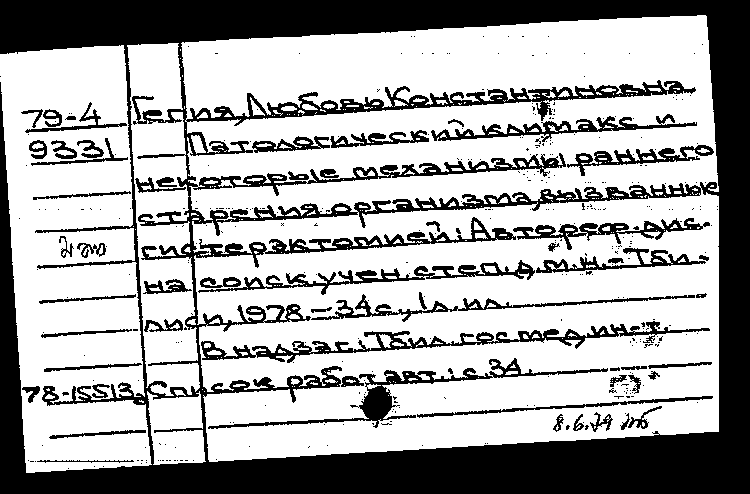 79-4 Гегия, Любовь Константиновна
9331 Патологический климакс и
некоторые механизмы раннего
старения организма, вызванные
гистерэктомией: Автореф. дис.
на соиск. учен. степ. д.м.н. - Тби-
лиси, 1978. - 34с., 1л. ил.
В надзаг.: Тбил. гос мед. ин-т.
78-15513а Список работ авт.: с. 34.
8.6.79